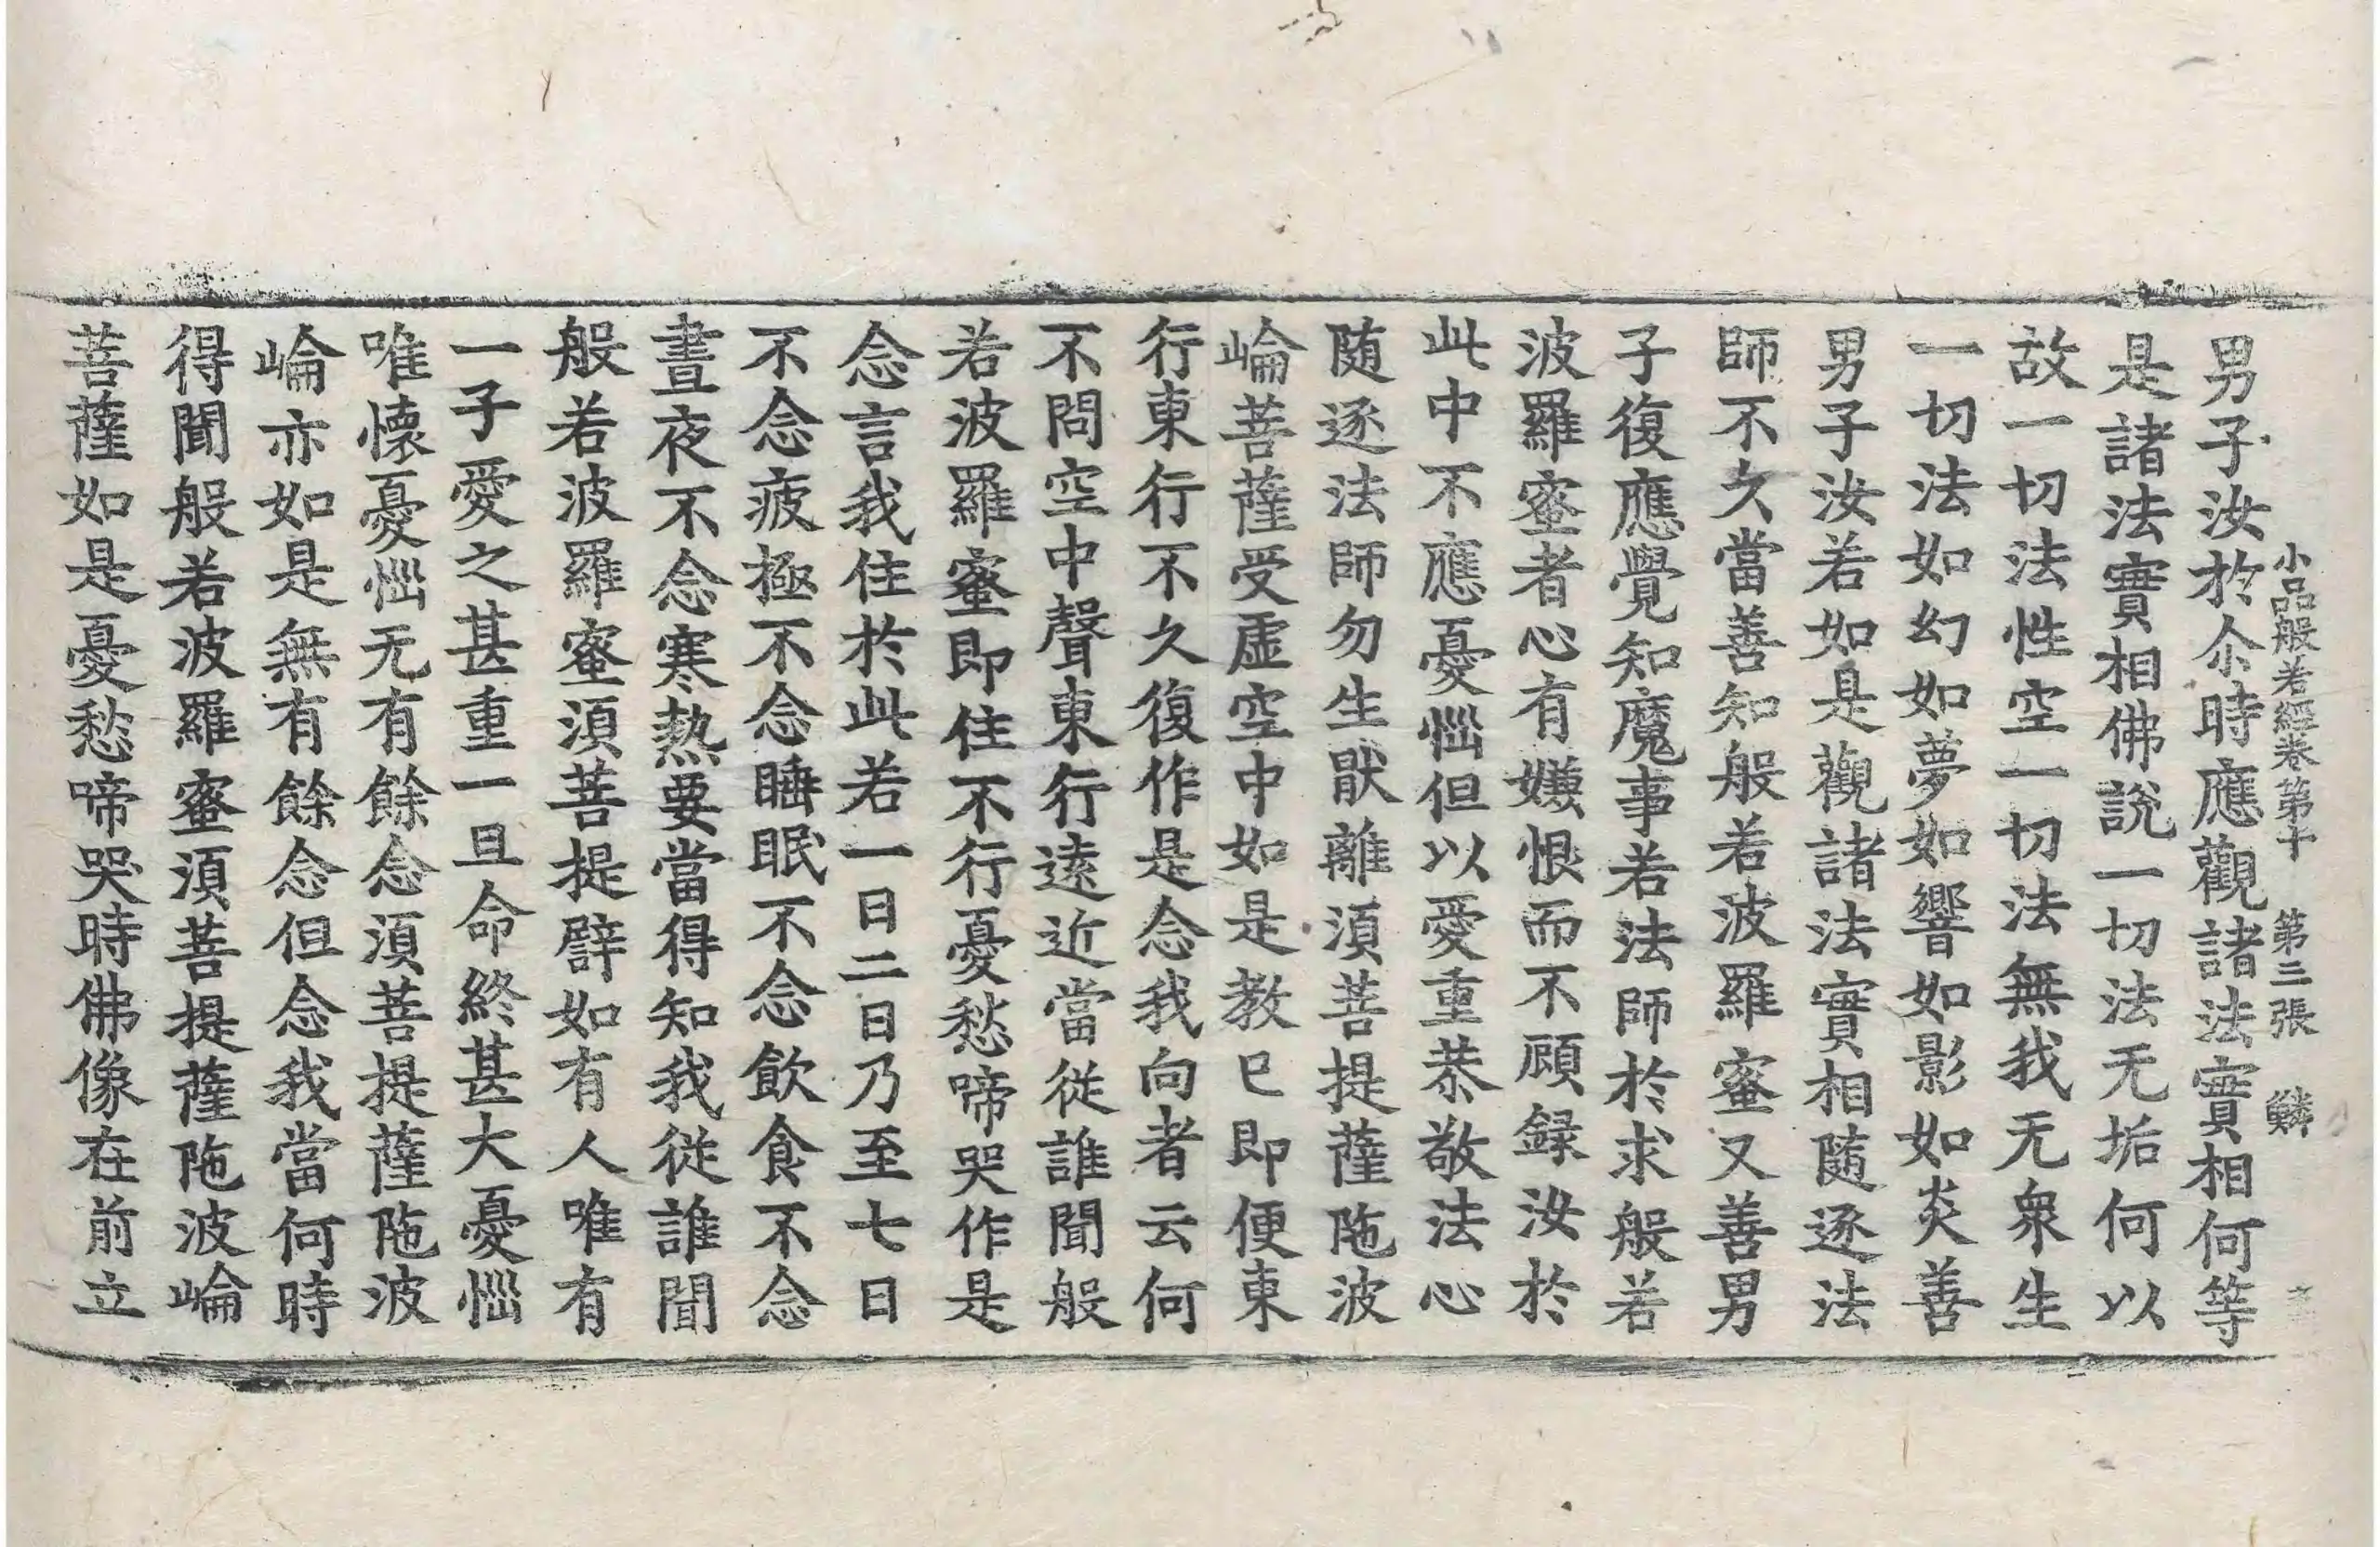 小品般若經卷第十　第三張　鱗
男子汝於尒時應觀諸法實相何等
是諸法實相佛說一切法无垢何以
故一切法性空一切法無我无衆生
一切法如幻如夢如響如影如炎善
男子汝若如是觀諸法實相隨逐法
師不久當善知般若波羅蜜又善男
子復應覺知魔事若法師於求般若
波羅蜜者心有嫌恨而不顧録汝於
此中不應憂惱但以愛重恭敬法心
随逐法師勿生猒離湏菩提薩陁波
崘菩薩受虛空中如是教已即便東
行東行不久復作是念我向者云何
不問空中聲東行逺近當從誰聞般
若波羅蜜即住不行憂愁啼哭作是
念言我住於此若一日二日乃至七日
不念疲極不念睡眠不念飲食不念
晝夜不念寒熱要當得知我從誰聞
般若波羅蜜湏菩提譬如有人唯有
一子愛之甚重一旦命終甚大憂惱
唯懷憂惱无有餘念湏菩提薩陁波
崘亦如是無有餘念但念我當何時
得聞般若波羅蜜湏菩提薩陁波崘
菩薩如是憂愁啼哭時佛像在前立